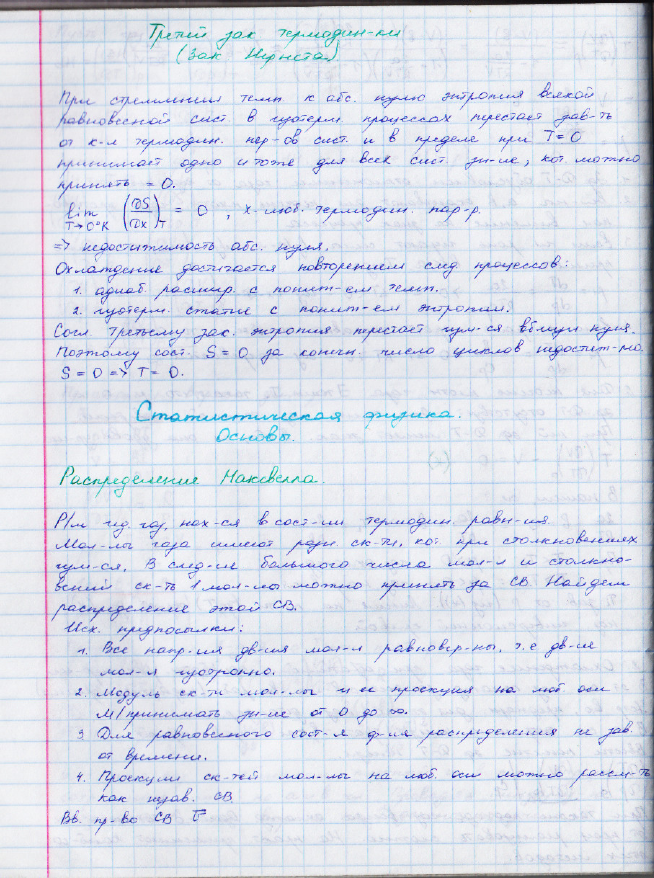 Третий зак термодин-ки
(Зак Нернста)
При стремлении темп к абс. нулю энтропия всякой
равновесной сист. в изотерм. процессах перестает зав-ть
от к-л термодин. пар-ов сист. и в пределе при T=0
принимает одно и тоже для всех сист. зн-ие, кот можно
принять = 0.
lim (∂S/∂x)T = 0 , x-люб. термодин. пар-р.
T→0°K
=> недостижимость абс. нуля.
Охлаждение достигается повторением след процессов:
1. адиаб. расшир. с пониж-ем темп.
2. изотерм. сжатие с пониж-ем энтропии.
Согл третьему зак. энтропия перестает изм-ся вблизи нуля.
Поэтому сост. S=0 за конечн. число циклов недостиж-мо
S=0 => T=0.
Статистическая физика.
Основы.
Распределение Максвелла.
Р/м ид. газ, нах-ся в сост-ии термодин. равн-ия.
Мол-лы газа имеют разн. ск-ти, кот при столкновениях
изм-ся. В след-ие большого числа мол-л и столкно-
вений ск-ть 1 мол-лы можно принять за СВ Найдем
распределение этой СВ.
Исх. предпосылки:
1. Все напр-ия дв-ия мол-л равновер-ны, т.е дв-ие
мол-л изотропно.
2. Модуль ск-ти мол-лы и ее проекция на люб оси
м/принимать зн-ие от 0 до ∞.
3. Для равновесного сост-я ф-ия распределения не зав.
от времени.
4. Проекции ск-тей мол-лы на люб. оси можно рассм-ть
как незав. СВ.
Вв. пр-во СВ v̄